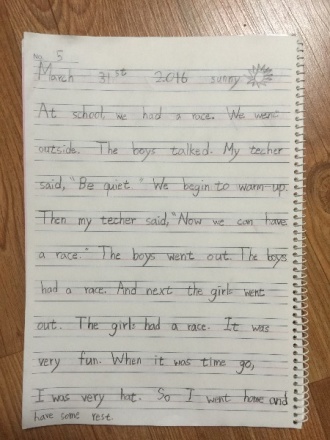 No. 5
March 31st 2016 sunny
At school we had a race. We went
outside. The boys talked. My techer
said, "Be quiet." We begin to warm-up.
Then my techer said, "Now we can have
a race." The boys went out. The boys
had a race. And next the girls went
out. The girls had a race. It was
very fun. When it was time go,
I was very hat. So I went home and
have some rest.